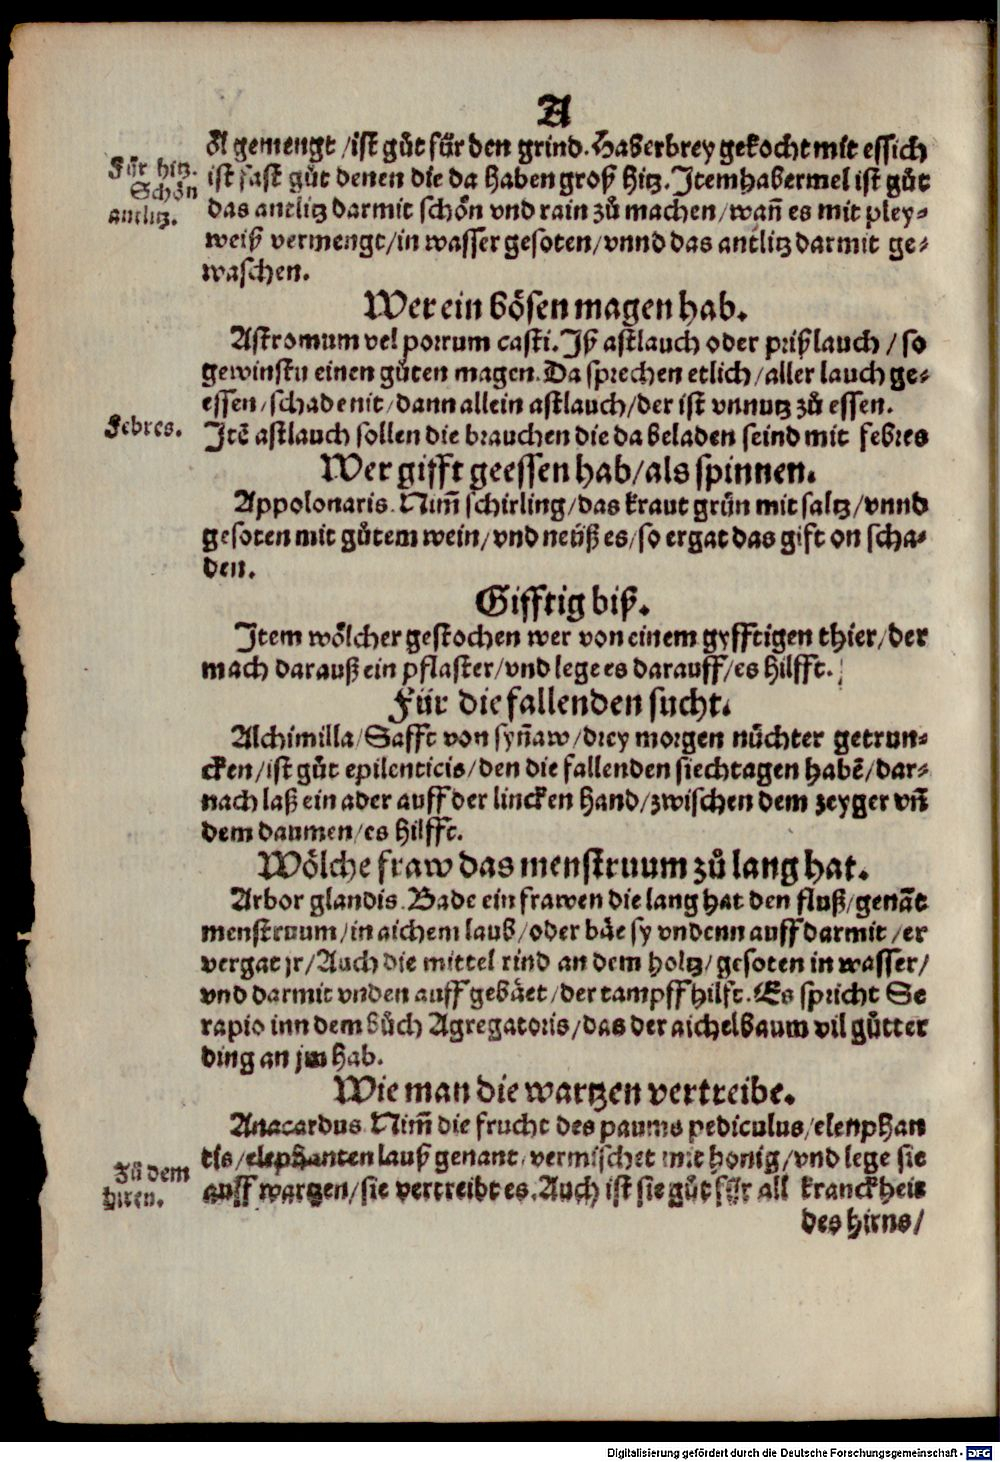 A
öl gemengt /ist gůt für den grind. Haberbrey gekocht mit essich
Für hitz.
Schön
antlitz.
ist fast gůt denen die da haben groß hitz. Item habermel ist gůt
das antlitz darmit schön vnd rain zů machen/wañ es mit pley-
weiß vermengt/in wasser gesoten/vnnd das antlitz darmit ge-
waschen.
Wer ein bösen magen hab.
Astromum vel porrum casti. Iß astlauch oder prißlauch / so
gewinstu einen gůten magen. Da sprechen etlich/aller lauch ge-
essen/schade nit/dann allein astlauch/der ist vnnutz zů essen.
Febres.
Itē astlauch sollen die brauchen die da beladen seind mit febres
Wer gifft geessen hab/als spinnen.
Appolonaris. Nim̄ schirling/das kraut grün mit saltz/vnnd
gesoten mit gůtem wein/vnd neüß es/so ergat das gift on scha-
den.
Gifftig biß.
Item wölcher gestochen wer von einem gyfftigen thier/der
mach darauß ein pflaster/vnd lege es darauff/es hilfft.
Für die fallenden sucht.
Alchimilla/Safft von syñaw/drey morgen nüchter getrun-
cken/ist gůt epilenticis/den die fallenden siechtagen habē/dar-
nach laß ein ader auff der lincken hand/zwischen dem zeyger vñ
dem daumen/es hilfft.
Wölche fraw das menstruum zů lang hat.
Arbor glandis. Bade ein frawen die lang hat den fluß/genāt
menstruum/in aichem laub/oder bäe sy vndenn auff darmit /er
vergat jr/Auch die mittel rind an dem holtz/gesoten in wasser/
vnd darmit vnden auff gebäet/der tampff hilft. Es spricht Se
rapio inn dem bůch Agregatoris/das der aichelbaum vil gůtter
ding an jm hab.
Wie man die wartzen vertreibe.
Anacardus. Nim̄ die frucht des paums pediculus/elenphan
tis/elephanten lauß genant/vermischet mit honig/vnd lege sie
Zů dem
hiren.
auff wartzen/sie vertreibt es. Auch ist sie gůt für all kranckheit
des hirns/
Digitalisierung gefördert durch die Deutsche Forschungsgemeinschaft - DFG